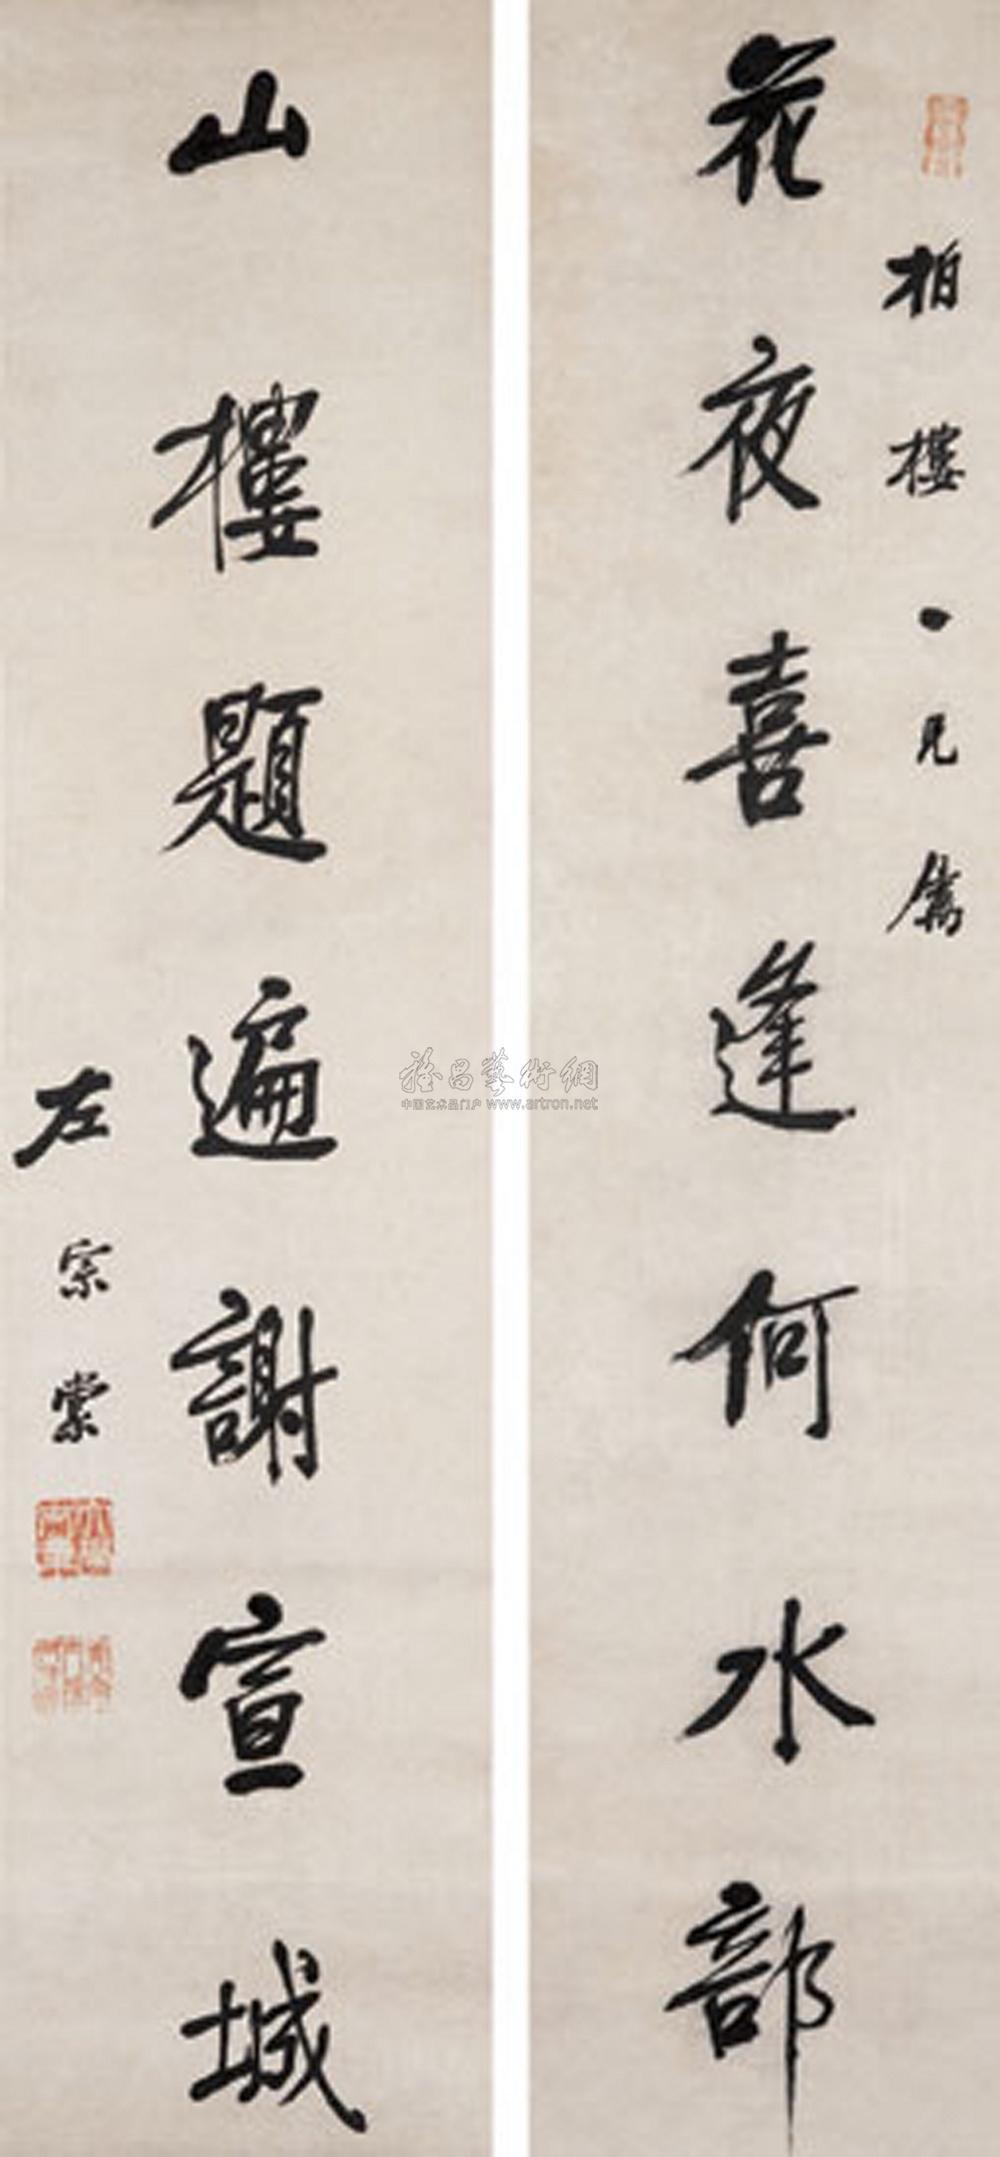 柏樓一兄屬
花夜喜逢何水部
山樓題遍謝宣城
左宗棠
雅昌藝術網
中国艺术品门户 www.artron.net